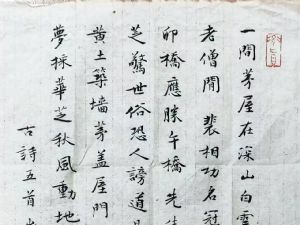 一間茅屋在深山白雲
老僧閒 裴相功名冠
卯橋應勝午橋 先
芝驚世俗恐人謗道
黄土築墙茅盖屋門
夢採華芝秋風動地
古詩五首